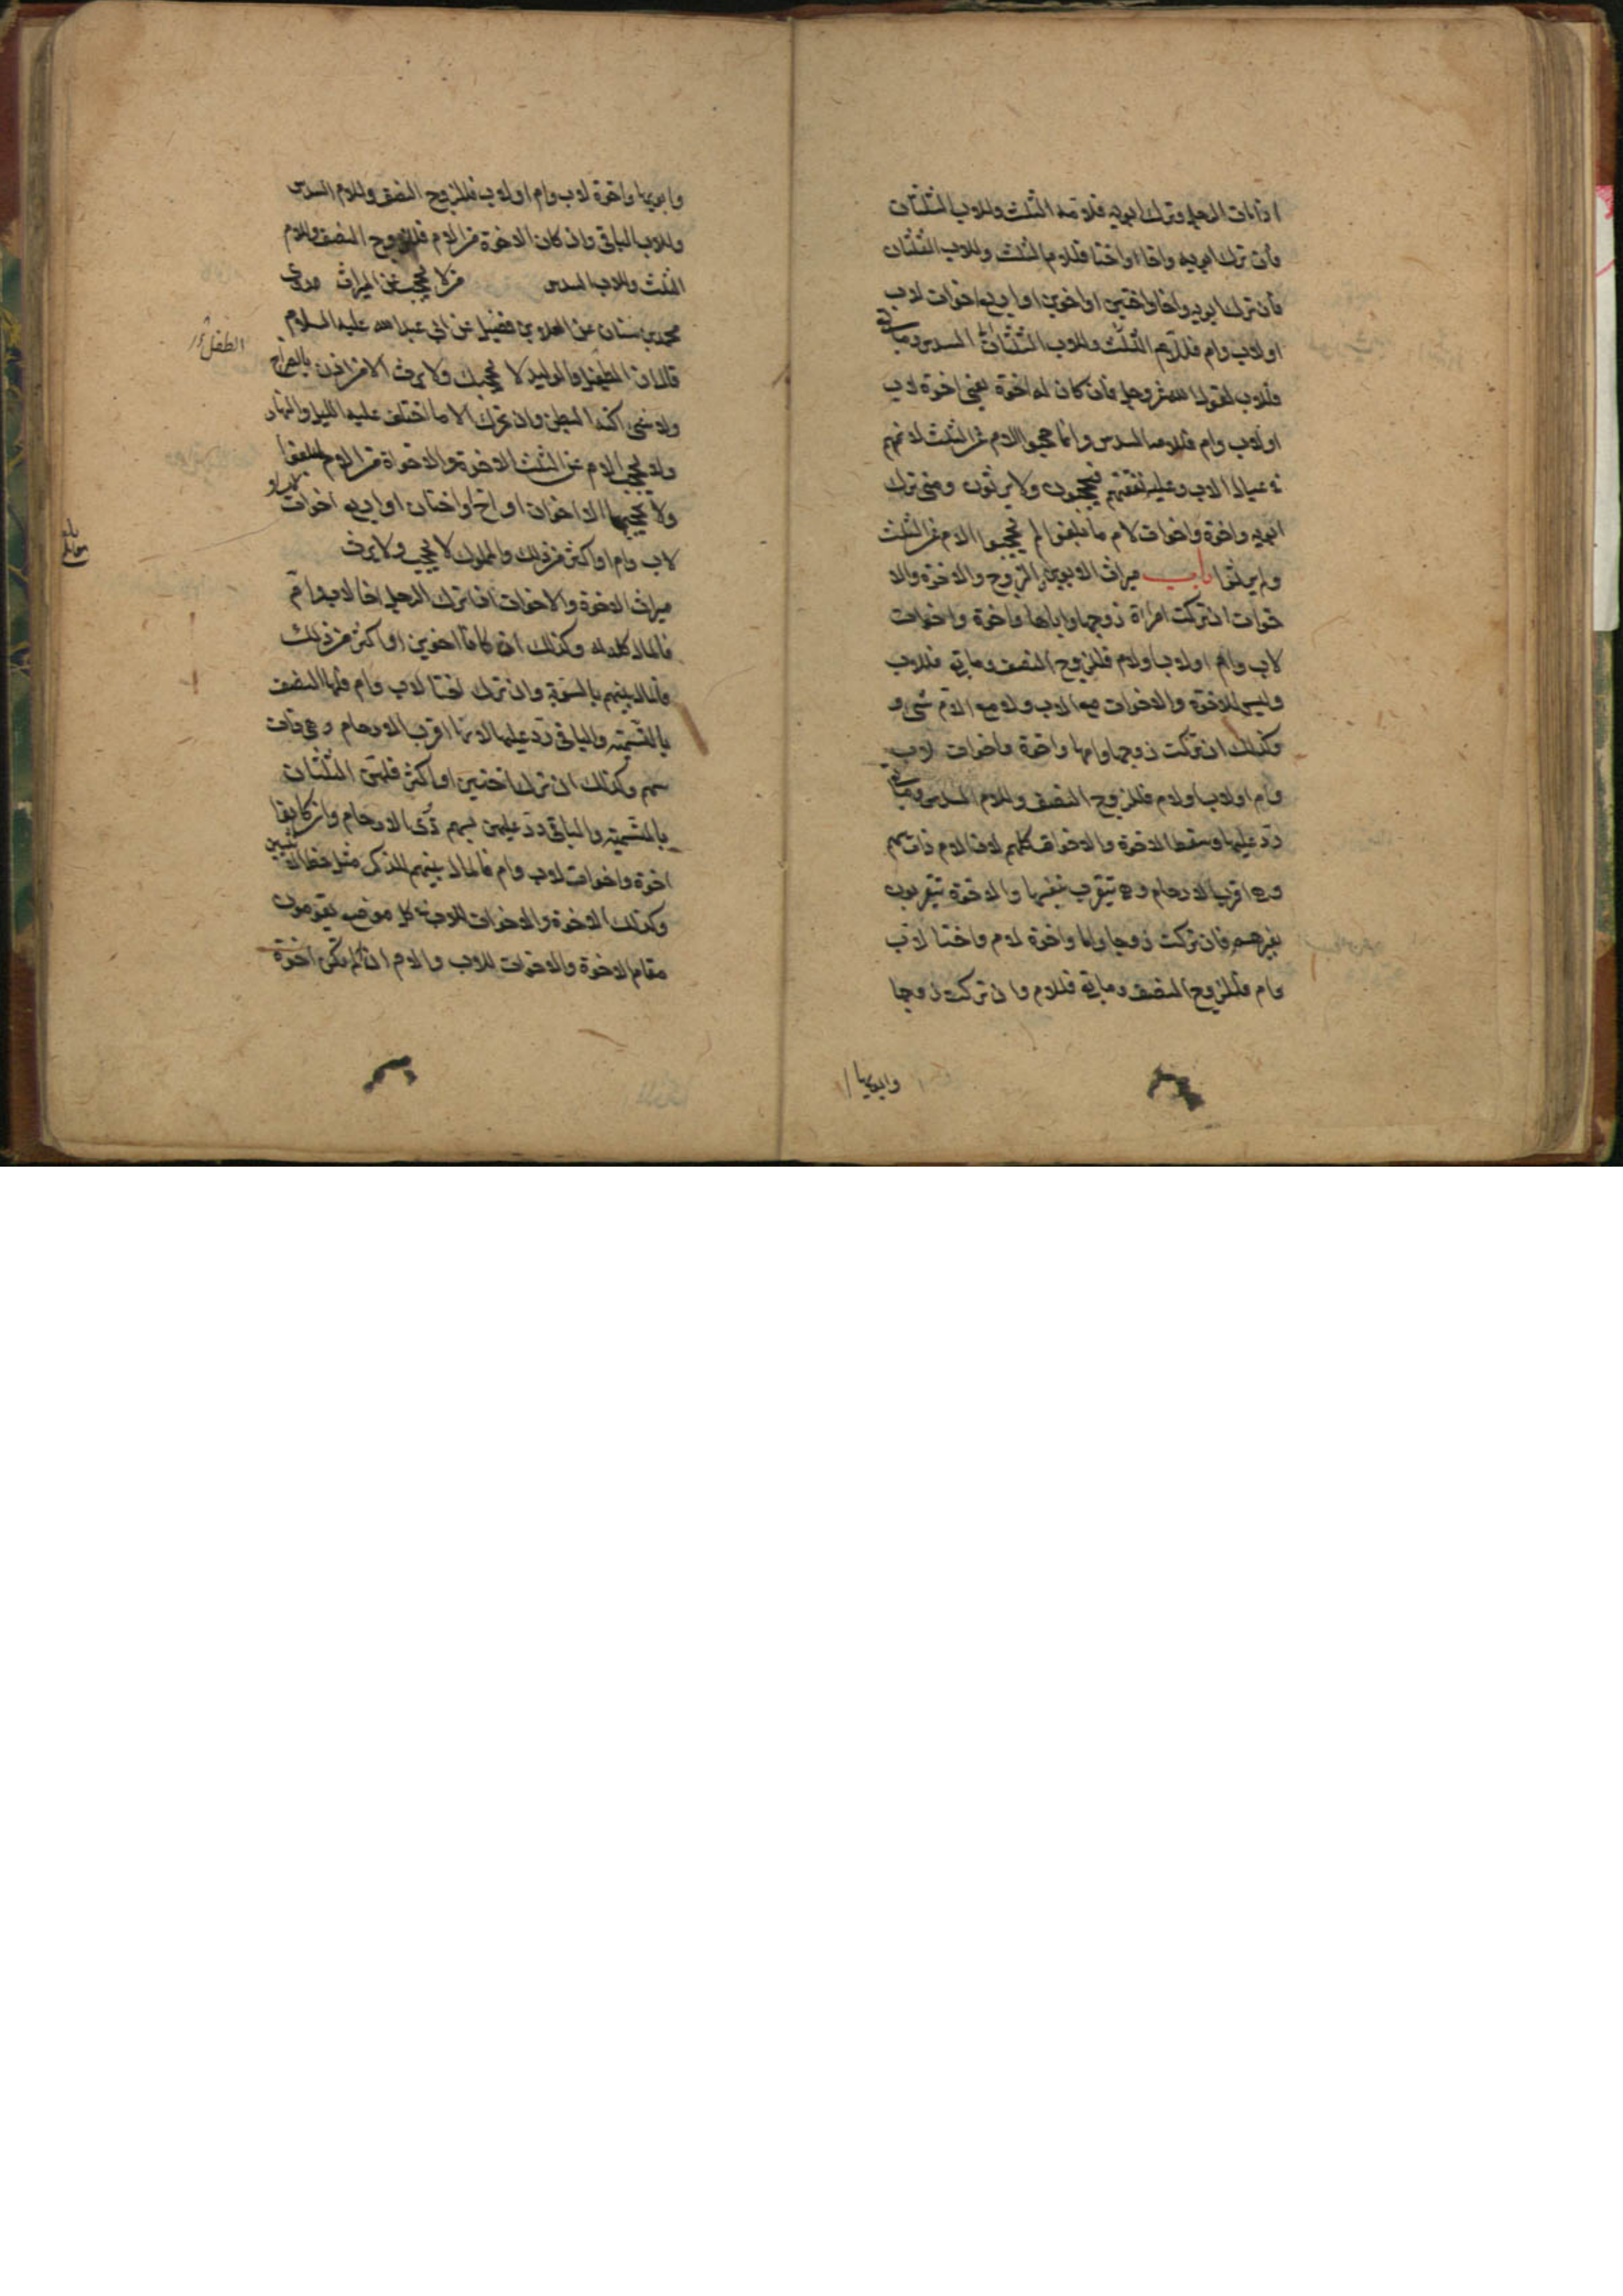 اذا مات الرجل وترك ابويه فلامه الثلث وللاب الثلثان
فان ترك ابويه واخا او اختا فللام الثلث وللاب الثلثان
فان ترك ابويه واخا واختين او اخوين او اربع اخوات لاب
او لاب وام فللام السدس وما بقى
فللاب لقول الله عز وجل فان كان له اخوة يعنى اخوة لاب
او لاب وام فلامه السدس وانما حجبوا الام عن الثلث لانهم
فى عيال الاب وعليه نفقتهم فيحجبون ولا يرثون ومتى ترك
ابويه واخوة واخوات لام ما بلغوا لم يحجبوا الام عن الثلث
ولم يرثوا باب ميراث الابوين والزوج والاخوة والا
خوات ان تركت امراة زوجها واباها واخوة واخوات
لاب وام او لاب او لام فللزوج النصف وما بقى فللاب
وليس للاخوة والاخوات مع الاب ولا مع الام شىء و
كذلك ان تركت زوجها وامها واخوة واخوات لاب
وام او لاب او لام فللزوج النصف وللام السدس وما بقى
رد عليها وسقط الاخوة والاخوات كلهم لان الام ذات سهم
وهى اقرب الارحام وهى تتقرب بنفسها والاخوة يتقربون
بغيرهم فان تركت زوجا واما واخوة لام واختا لاب
وام فللزوج النصف وما بقى فللام وان تركت زوجا
وابويها
وابويها واخوة لاب وام او لاب فللزوج النصف وللام السدس
وللاب الباقى وان كان الاخوة من الام فللزوج النصف وللام
الثلث وللاب السدس من لا يحجب عن الميراث روى
محمد بن سنان عن العلا بن فضيل عن ابى عبد الله عليه السلام
قال ان الطفل والوليد لا يحجبك ولا يرث الا من اذن بالصراخ
الطفل
ولا شىء اكنه البطن وان تحرك الا ما اختلف عليه الليل والنهار
ولا يحجب الام عن الثلث الاخوة والاخوات من الام ما بلغوا
ولا يحجبها الا اخوان او اخ واختان او اربع اخوات لاب او
لاب وام او اكثر من ذلك والمملوك لا يحجب ولا يرث
ميراث الاخوة والاخوات اذا ترك الرجل اخا لاب وام
فالمال كله له وكذلك ان كانا اخوين او اكثر من ذلك
فالمال بينهم بالسوية وان ترك اختا لاب وام فلها النصف
بالتسمية والباقى رد عليها لانها اقرب الارحام وهى ذات
سهم وكذلك ان ترك اختين او اكثر فلهن الثلثان
بالتسمية والباقى رد عليهن بسهم ذوى الارحام وان كانوا
اخوة واخوات لاب وام فالمال بينهم للذكر مثل حظ الانثيين
وكذلك الاخوة والاخوات للاب فى كل موضع يقومون
مقام الاخوة والاخوات للاب والام اذا لم تكن اخوة